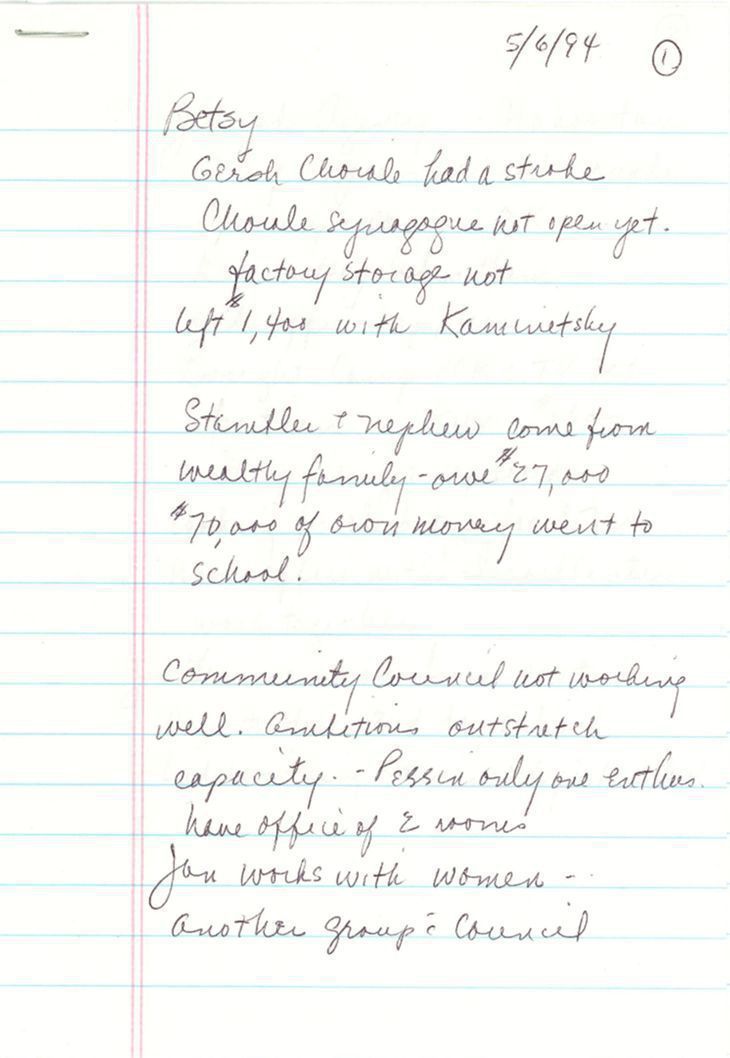 5/6/94 ①
Betsy
Gersh Chorale had a stroke
Chorale synagogue not open yet.
factory storage not
left $1,400 with Kaminetsky
Stambler & nephew come from
wealthy family - owe $27,000
$70,000 of own money went to
school.
Community Council not working
well. Ambitions outstretch
capacity. - Pessin only one enthus.
have office of 2 rooms
Jan works with women -
another group c̄ Council